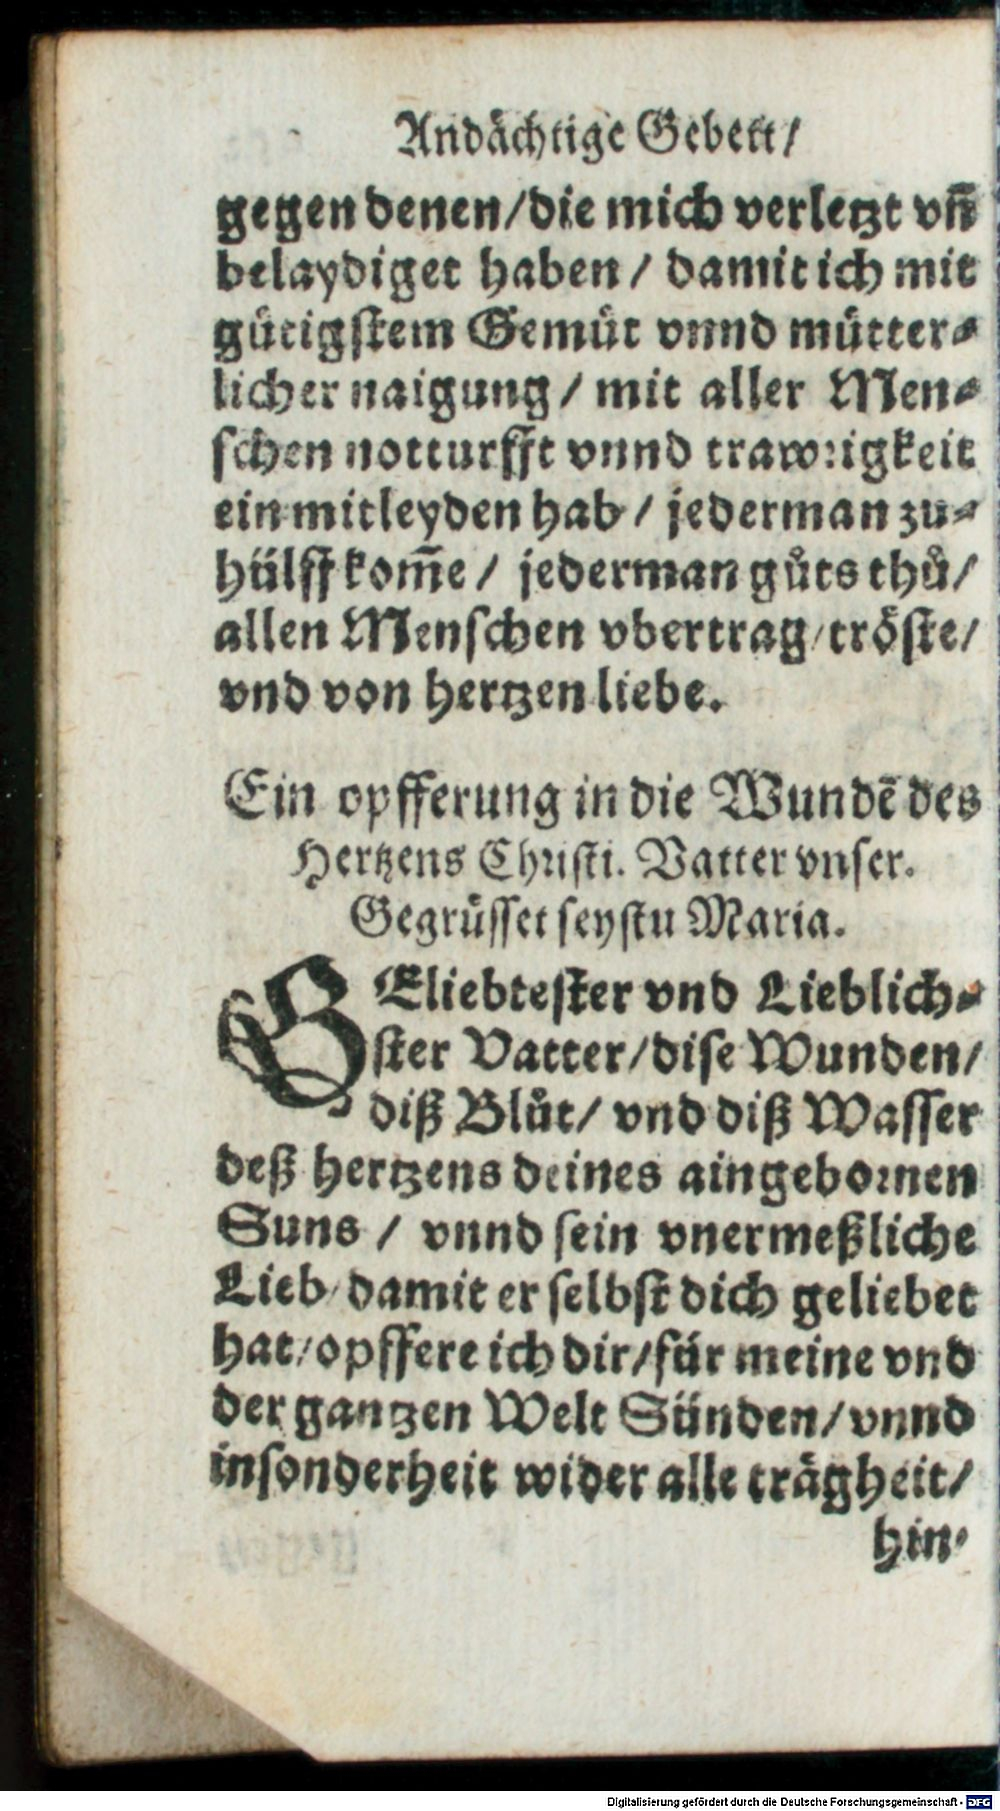 Andächtige Gebett/
gegen denen/die mich verletzt vñ
belaydiget haben / damit ich mit
gütigstem Gemüt vnnd mütter⸗
licher naigung / mit aller Men⸗
schen notturfft vnnd trawrigkeit
ein mitleyden hab / jederman zu⸗
hülff kom̅e / jederman gůts thů/
allen Menschen vbertrag/tröste/
vnd von hertzen liebe.
Ein opfferung in die Wundẽ des
Hertzens Christi. Vatter vnser.
Gegrüsset seystu Maria.
GEliebtester vnd Lieblich⸗
ster Vatter/dise Wunden/
diß Blůt/ vnd diß Wasser
deß hertzens deines aingebornen
Suns / vnnd sein vnermeßliche
Lieb/damit er selbst dich geliebet
hat/opffere ich dir/für meine vnd
der gantzen Welt Sünden/vnnd
insonderheit wider alle trägheit/
hin⸗
Digitalisierung gefördert durch die Deutsche Forschungsgemeinschaft - DFG